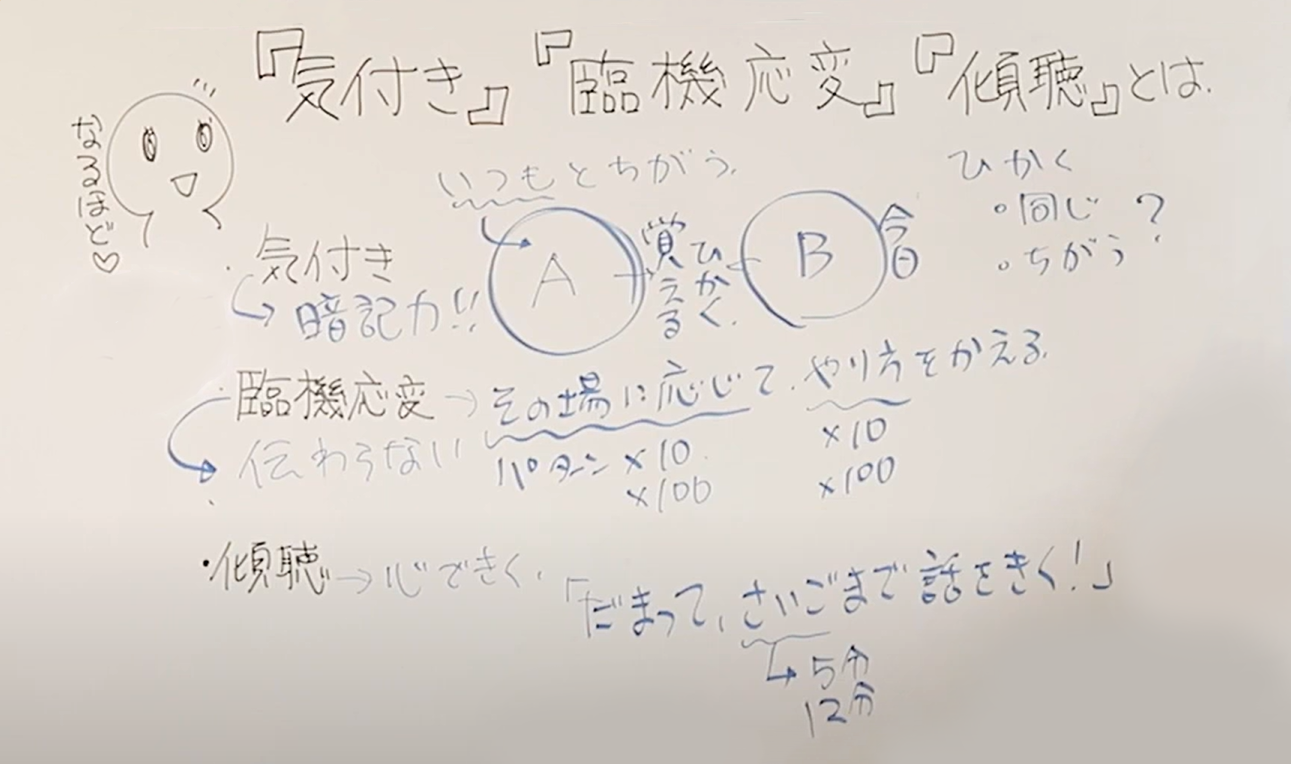 『気付き』『臨機応変』『傾聴』とは
なるほど♡
いつもとちがう
A
覚える
ひかく
B
今日
ひかく
・同じ ?
・ちがう
・気付き
暗記力!!
・臨機応変→その場に応じて、やり方をかえる
伝わらない
パターン×10
×100
×10
×100
・傾聴→心できく、
「だまって、さいごまで話をきく!」
5分
12分